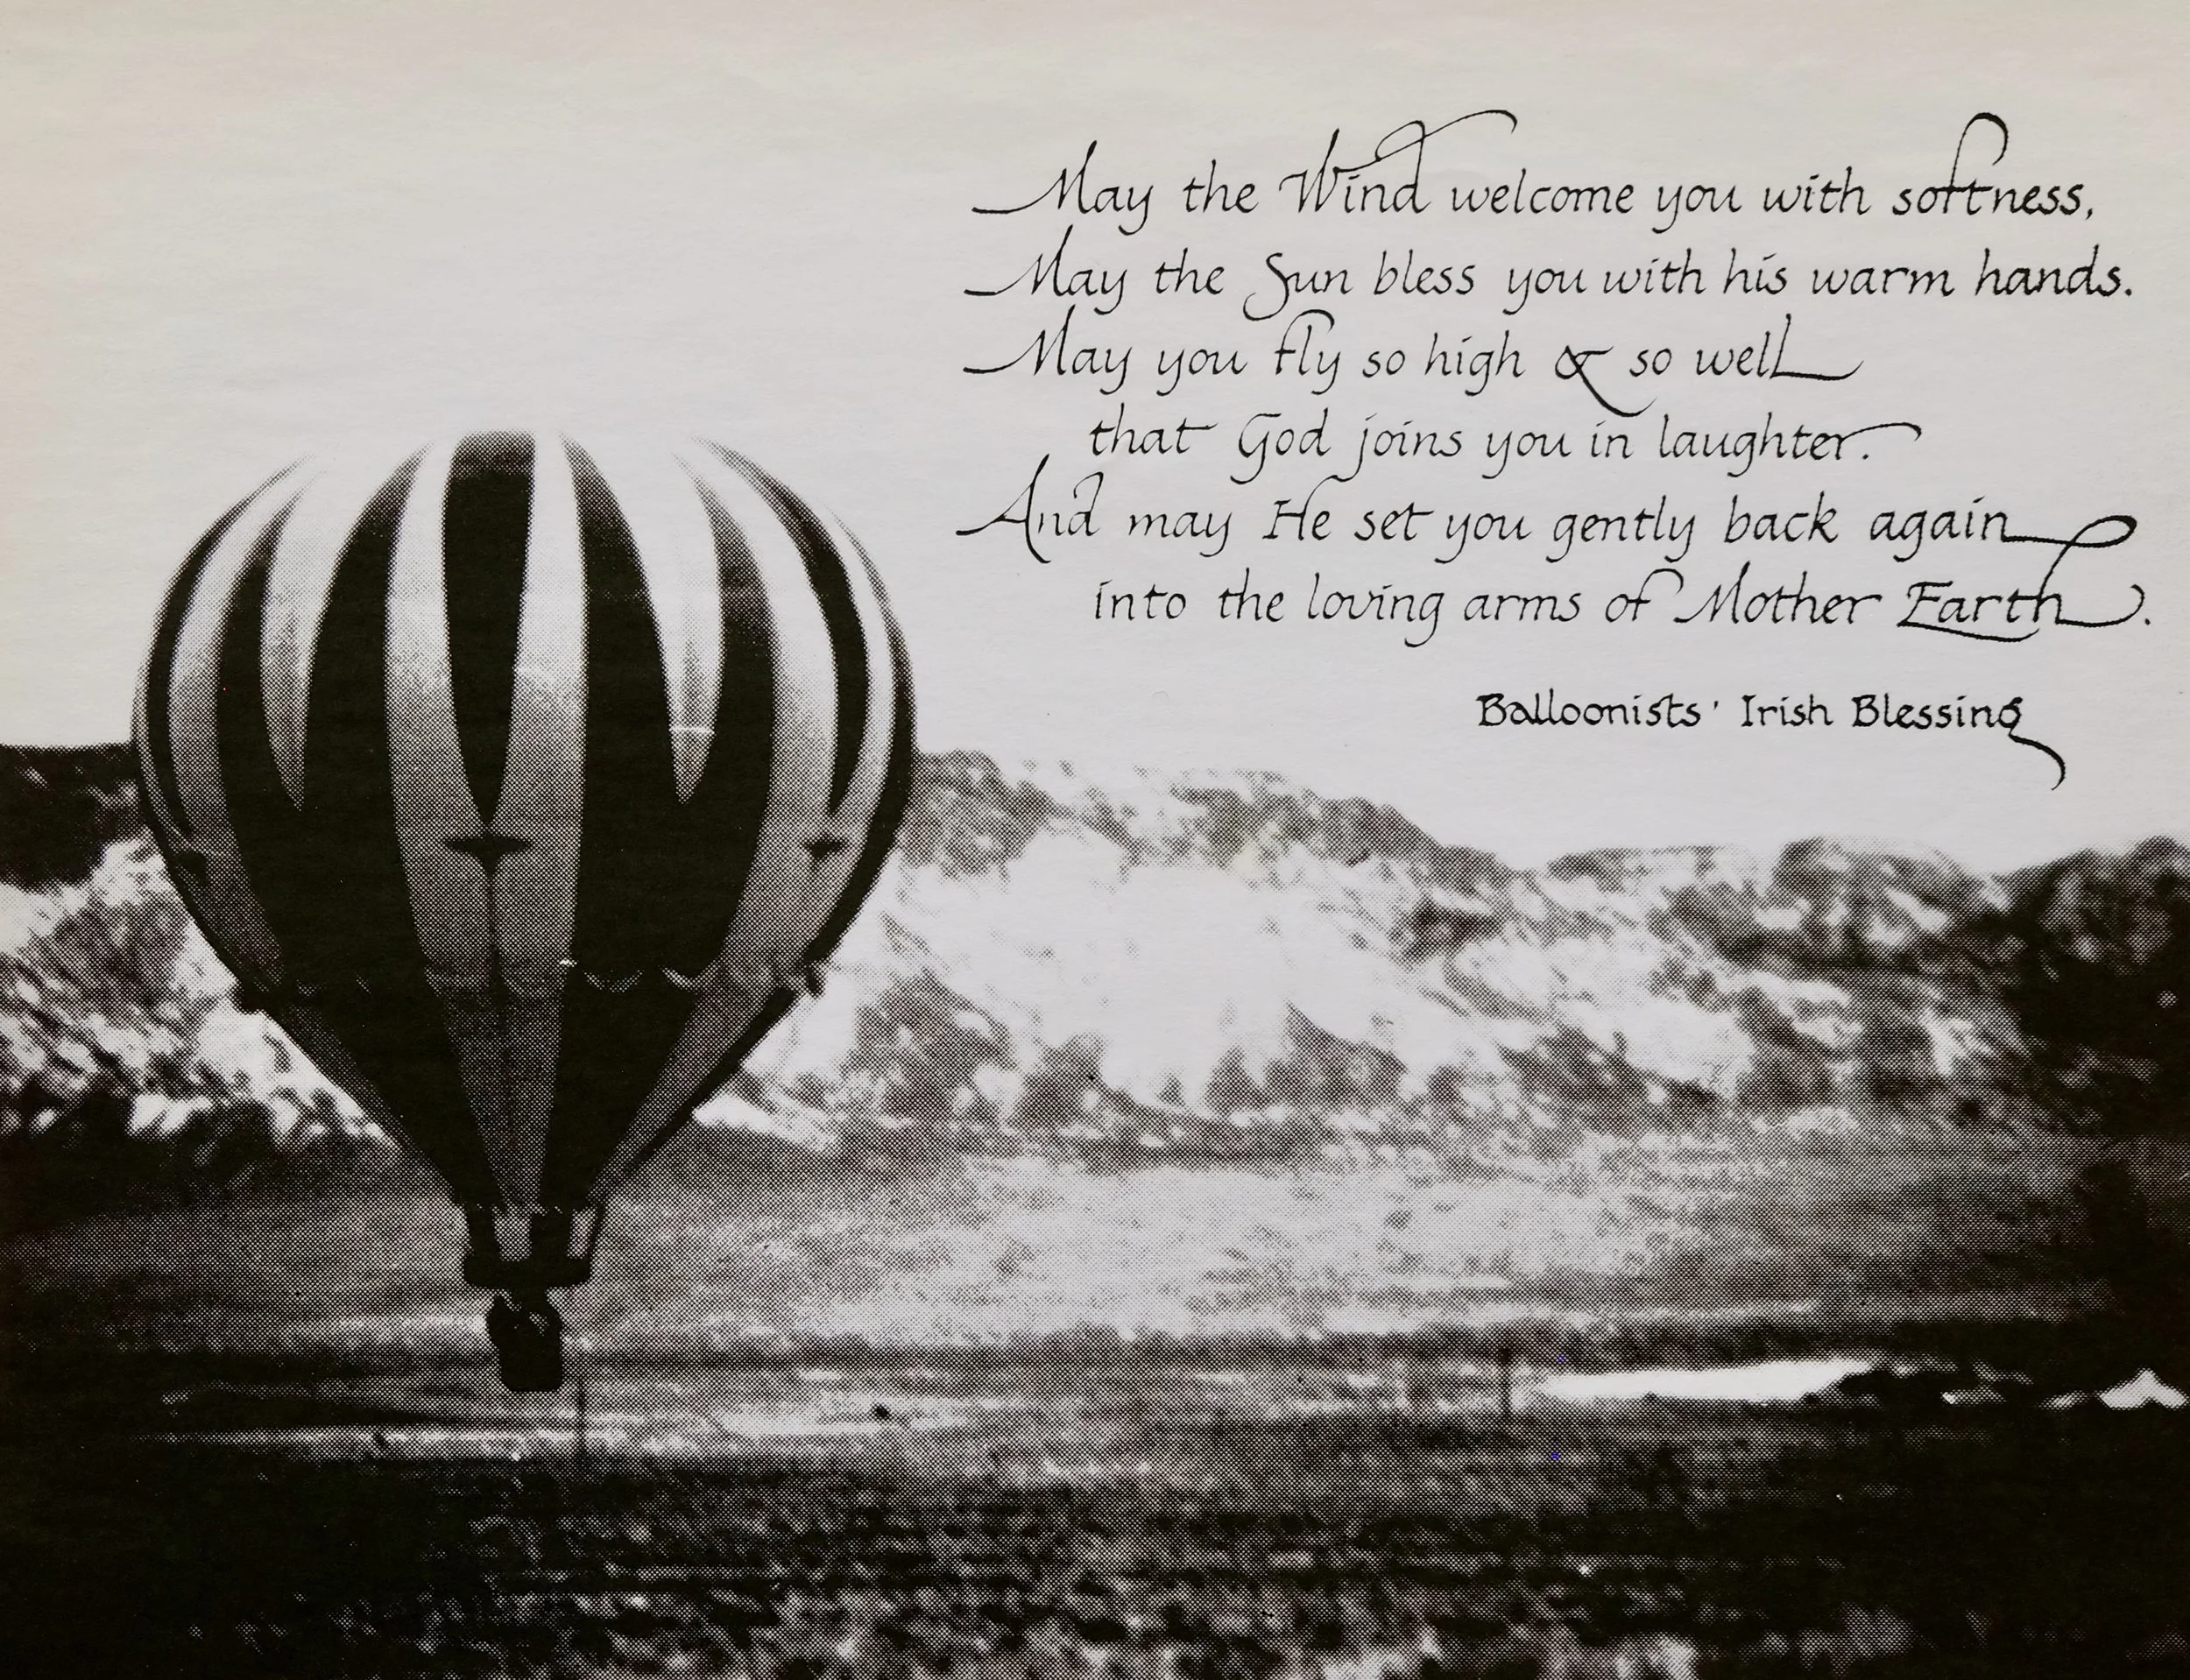 May the Wind welcome you with softness,
May the Sun bless you with his warm hands.
May you fly so high & so well
that God joins you in laughter.
And may He set you gently back again
into the loving arms of Mother Earth.
Balloonists' Irish Blessing